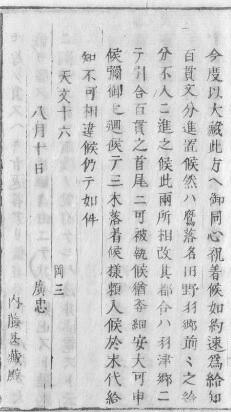 今度以大藏此方ヘ御同心祝着候如約速為給知
百貫文分進置候然ハ鷹落名田野羽郷前々之給
分不入ニ進之候此両所相改其都合ハ羽津郷ニ
テ引合百貫之首尾ニ可被執候猶委細安大可申
候彌御
廻候テ三木落着候様頼入候於末代給
知不可相違候仍テ如件
天文十六
八月十日
岡三
廣忠
内藤甚藏殿